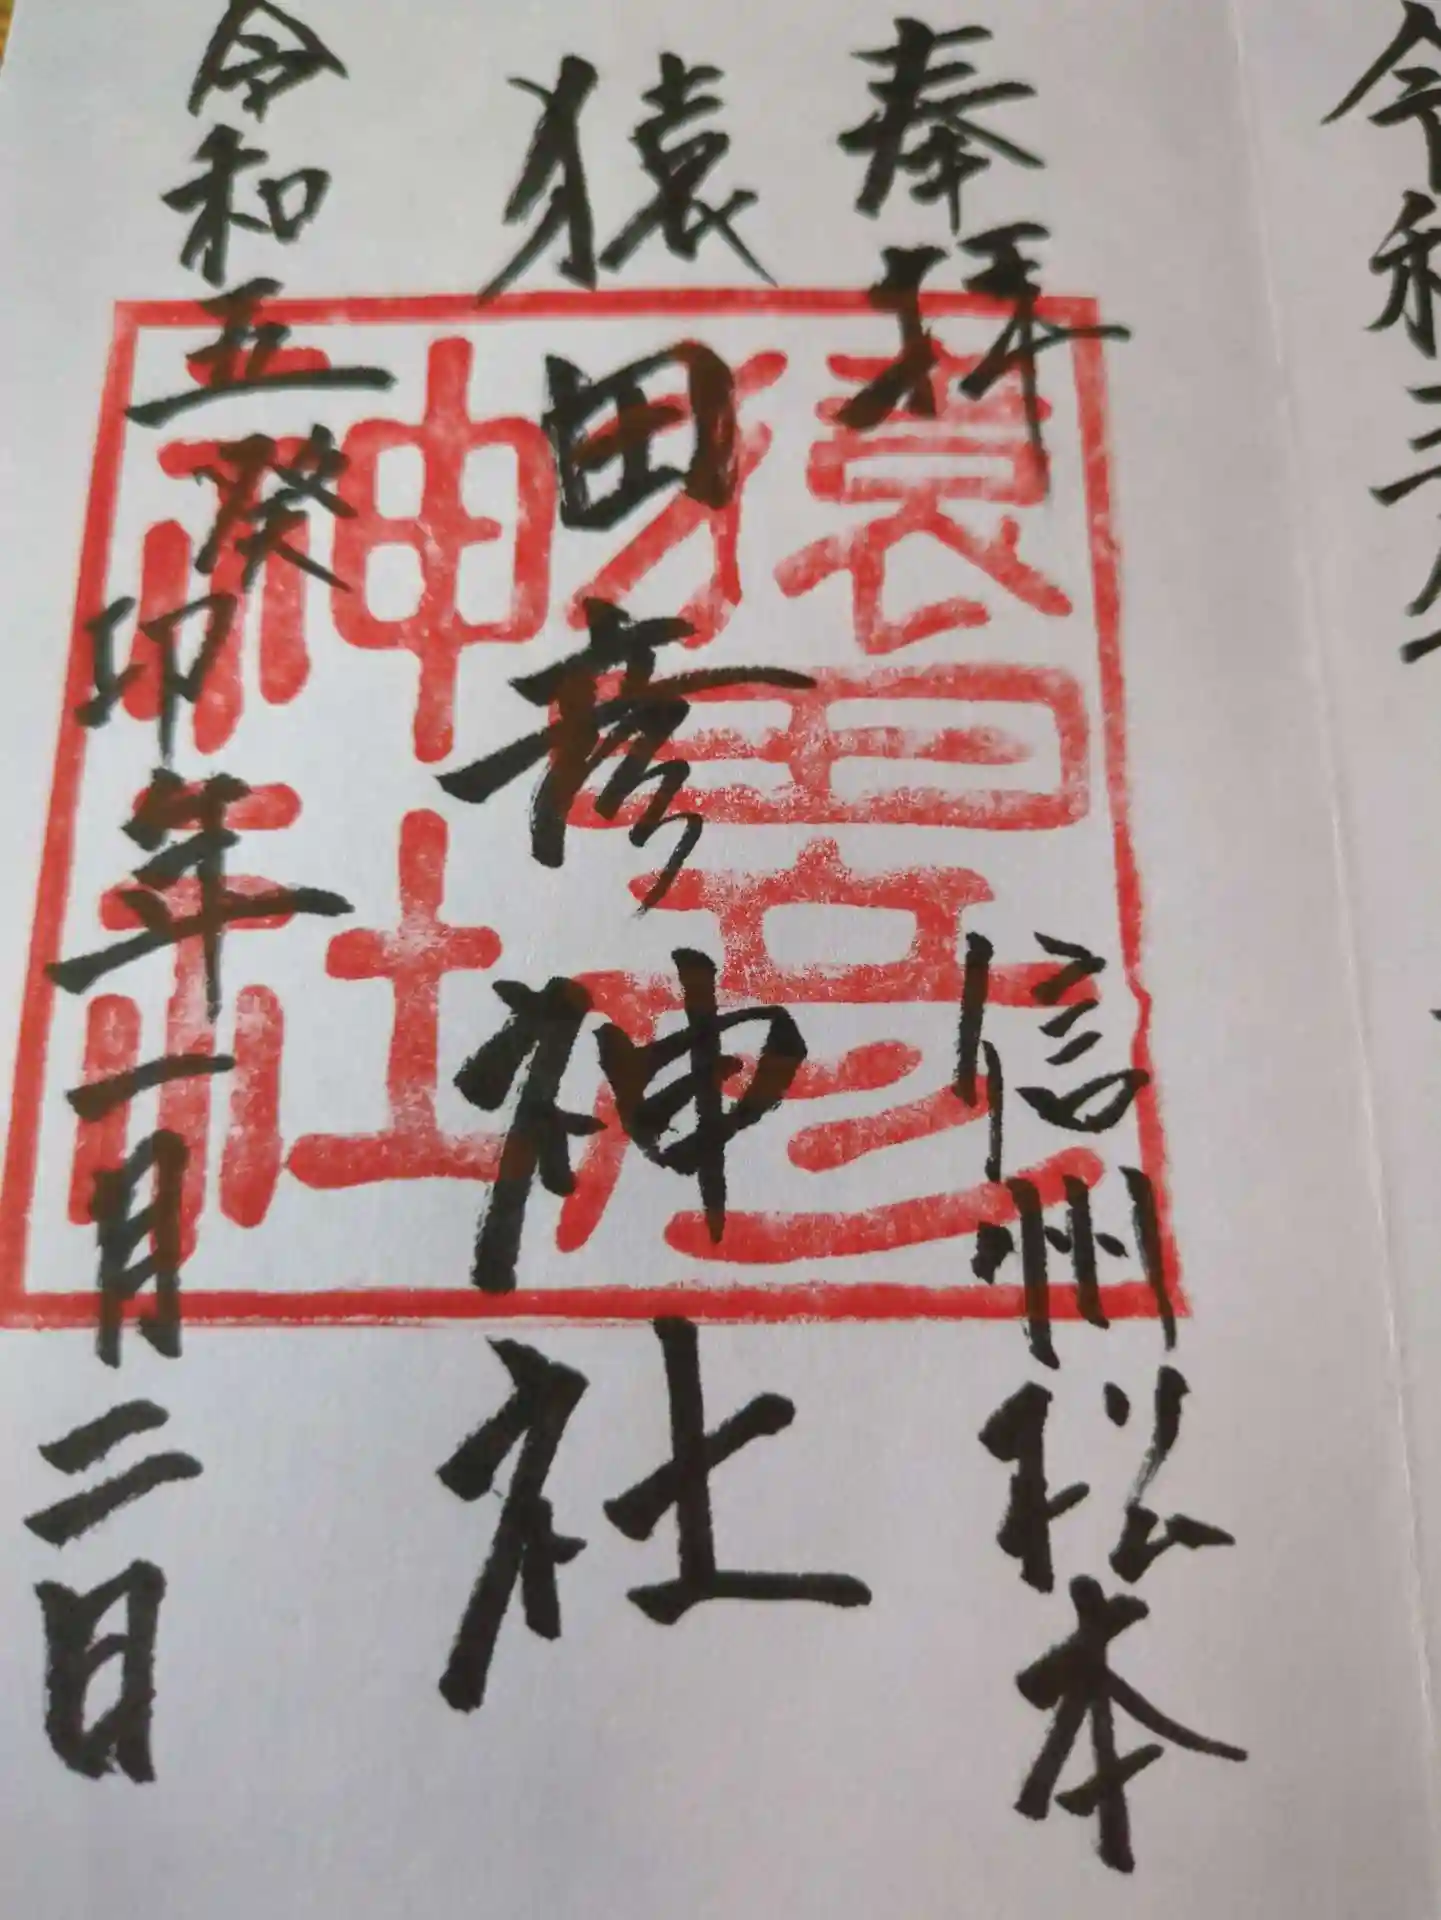 令和三
奉拝
信州松本
猿田彦神社
猿田彦
神社
令和五癸卯年一月二日